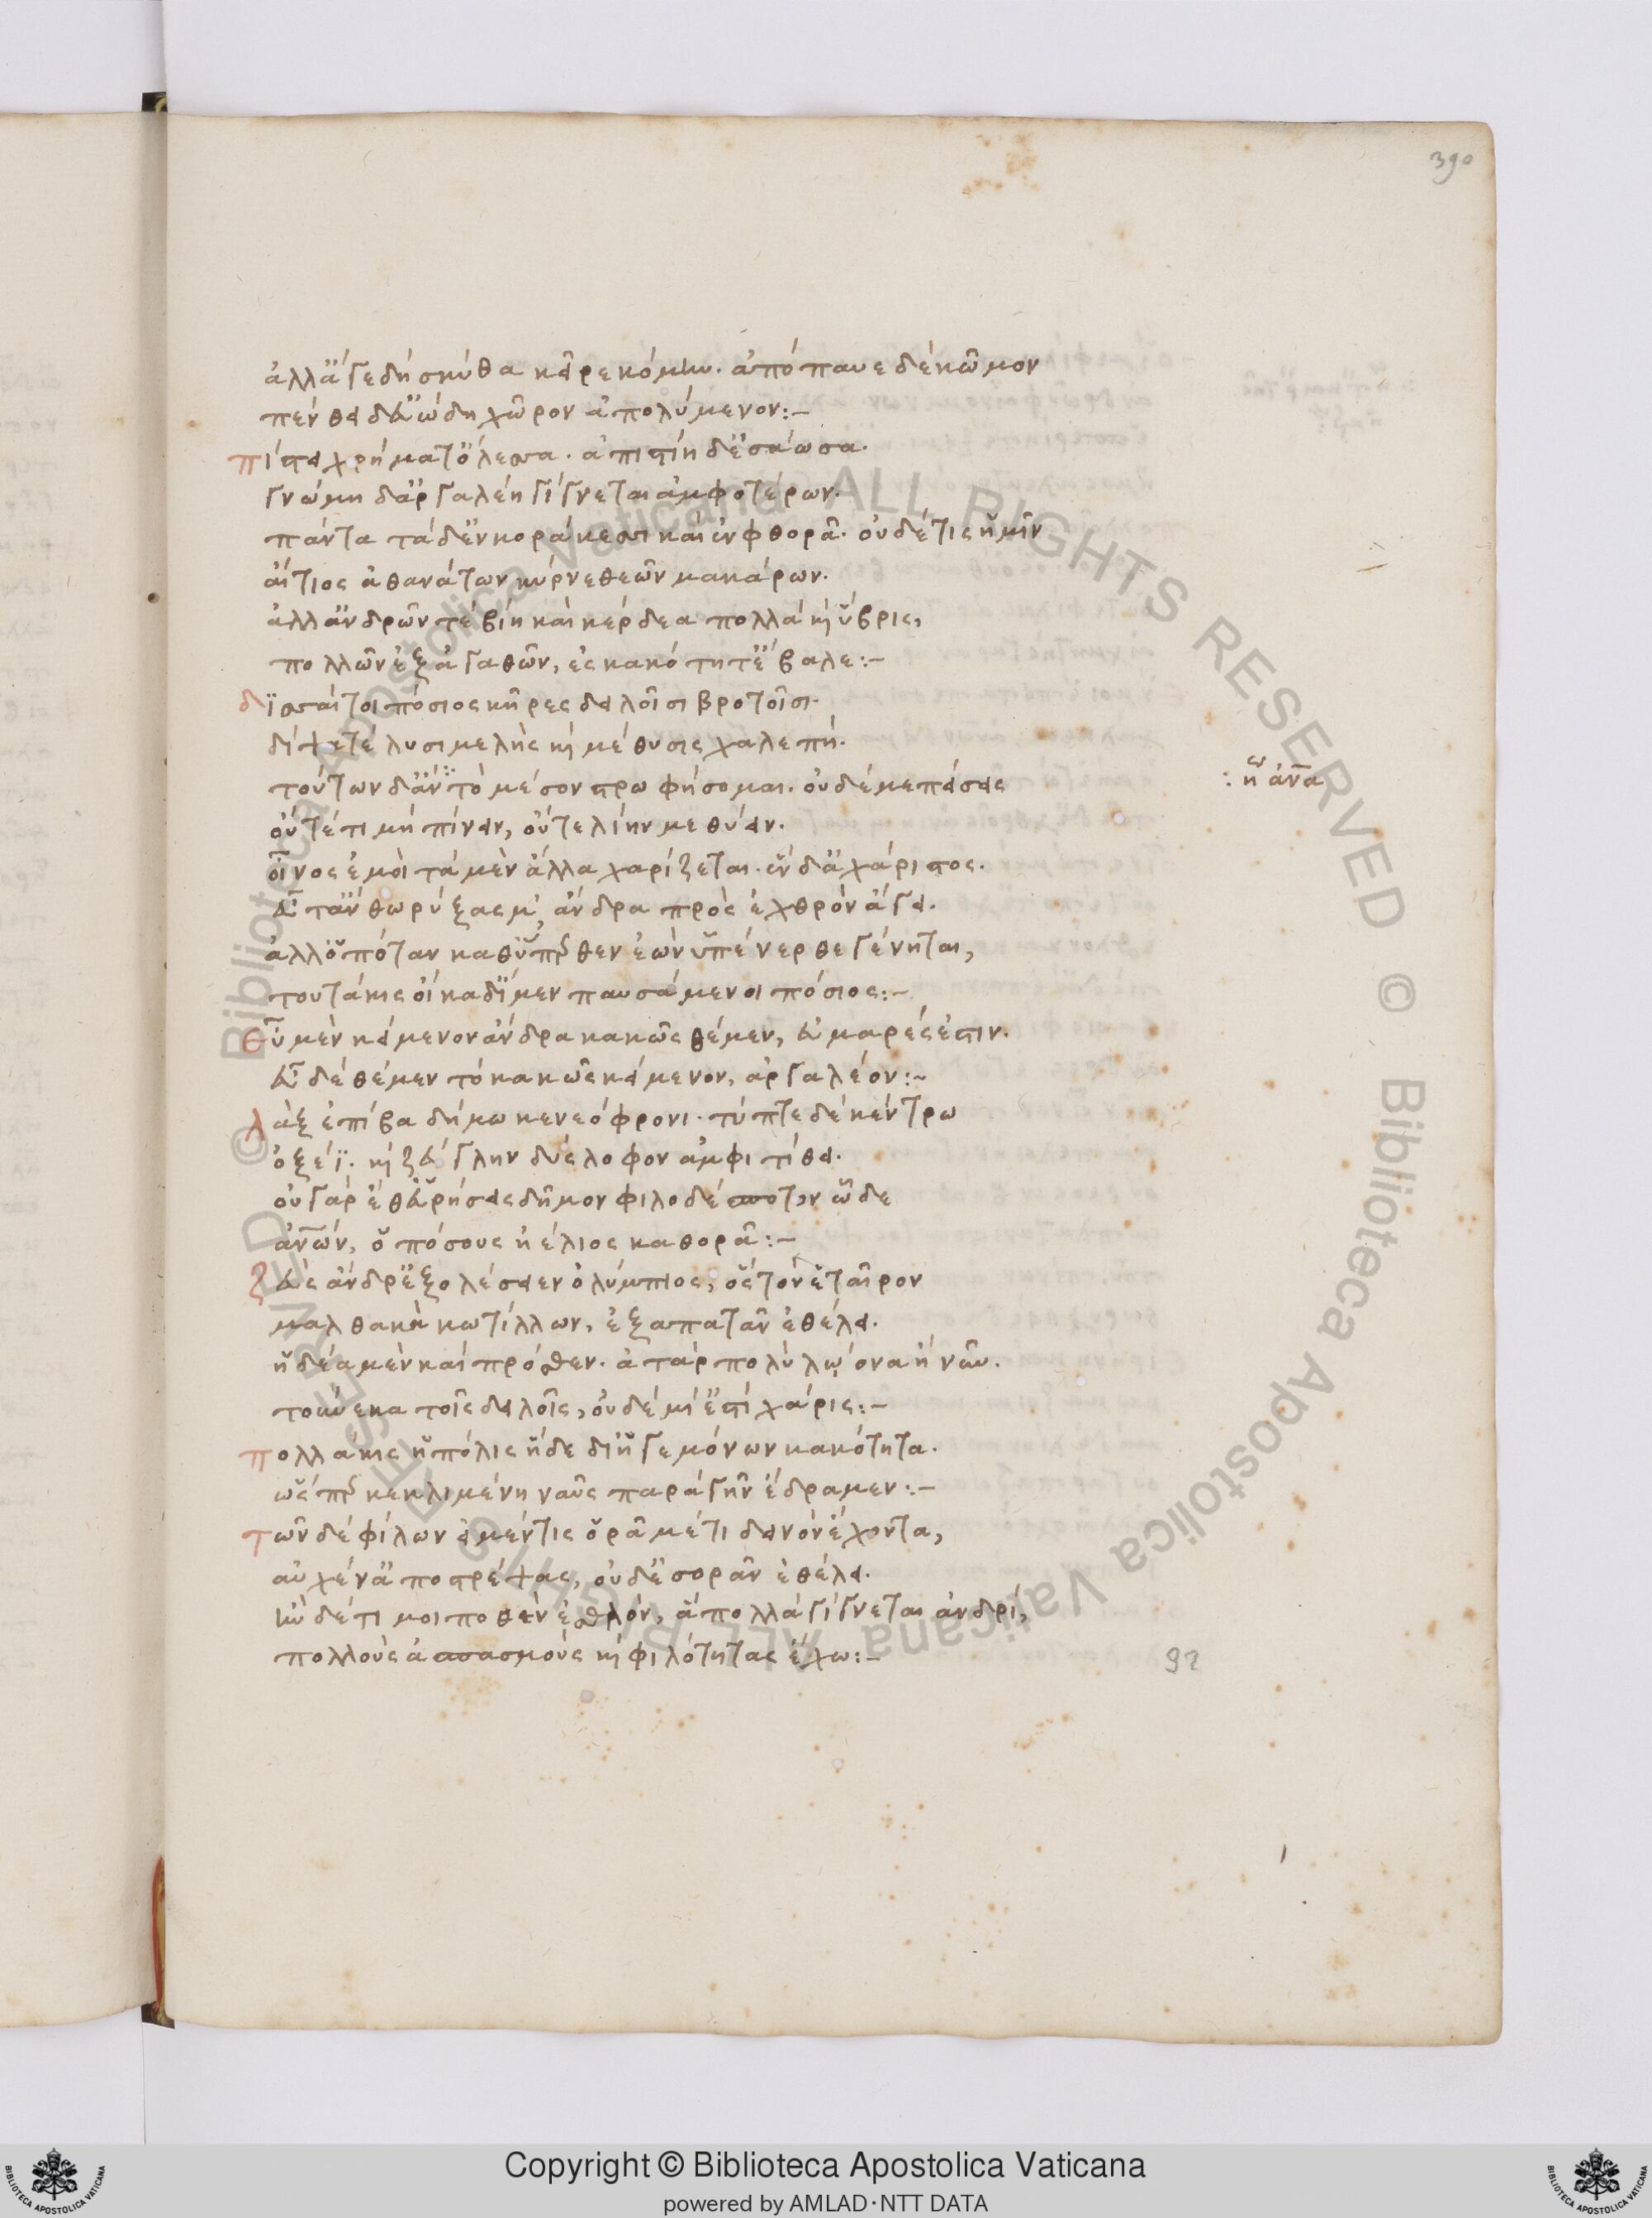 390
ἀλλ' ἄγε δὴ σκύθα κεῖρε κόμην· ἀπόπαυε δὲ κῶμον
πένθει δ' εὐώδη χῶρον ἀπολύμενον:–
πίστει χρήματ' ὄλεσσα· ἀπιστίη δ' ἐσάωσα·
γνώμη δ' ἀργαλέη γίγνεται ἀμφοτέρων·
πάντα τάδ' ἐν κοράκεσσι καὶ ἐν φθορᾶ· οὐδέ τις ἡμῖν
αἴτιος ἀθανάτων κύρνε θεῶν μακάρων·
ἀλλ' ἀνδρῶν τε βίη καὶ κέρδεα πολλὰ κὶ ὕβρις,
πολλῶν ἐξ ἀγαθῶν, ἐς κακότητ' ἔβαλε:–
δισσαί τοι πόσιος κῆρες δειλοῖσι βροτοῖσι·
δίψητε λυσιμελὴς κὶ μέθυσις χαλεπή·
τούτων δ' ἂν τὸ μέσον στρωφήσομαι· οὐδέ με πείσεις
: ἢ ἀνα
οὔτέ τι μὴ πίνειν, οὔτε λίην μεθύειν·
οἶνος ἐμοὶ τὰ μὲν ἄλλα χαρίζεται· ἓν δ' ἀχάριστος·
εὖτ' ἂν θωρύξας μ' ἄνδρα πρὸς ἐχθρὸν ἄγει·
ἀλλ' ὁπόταν καθύπερθεν ἐὼν ὑπένερθε γένηται,
τουτάκις οἴκαδ' ἴμεν παυσάμενοι πόσιος:–
εὖ μὲν κείμενον ἄνδρα κακῶς θέμεν, εὐμαρές ἐστιν·
εὖ δὲ θέμεν τὸ κακῶς κείμενον, ἀργαλέον:~
λὰξ ἐπίβα δήμω κενεόφρονι· τύπτε δὲ κέντρω
ὀξέϊ· κὶ ζεύγλην δύσλοφον ἀμφιτίθει·
οὐ γὰρ ἔθ' εὑρήσεις δῆμον φιλοδέσποτον ὧδε
ἀνων, ὁπόσους ἠέλιος καθορᾶ:–
ζεὺς ἄνδρ' ἐξολέσειεν ὀλύμπιος, ὃς τὸν ἑταῖρον
μαλθακὰ κωτίλλων, ἐξαπατᾶν ἐθέλει·
ἤδεα μὲν καὶ πρόσθεν· ἀτὰρ πολὺ λῴονα ἢ νῦν·
τοὔνεκα τοῖς δειλοῖς, οὐδέμί' ἐστὶ χάρις:–
πολλάκις ἡ πόλις ἥδε δι' ἡγεμόνων κακότητα·
ὥσπερ κεκλιμένη ναῦς παρὰ γῆν ἔδραμεν:–
τῶν δὲ φίλων εἰ μέν τις ὁρᾶ μέ τι δεινὸν ἔχοντα,
αὐχέν' ἀποστρέψας, οὐδ' ἐσορᾶν ἐθέλει·
ἢν δέ τί μοί ποθεν ἐσθλόν, ἃ πολλὰ γίγνεται ἀνδρί,
πολλοὺς ἀσπασμοὺς κὶ φιλότητας ἔχω:–
92
© Biblioteca Apostolica Vaticana ALL RIGHTS RESERVED © Biblioteca Apostolica Vaticana ALL RIGHTS RESERVED
Copyright © Biblioteca Apostolica Vaticana
powered by AMLAD·NTT DATA
BIBLIOTECA APOSTOLICA VATICANA
BIBLIOTECA APOSTOLICA VATICANA